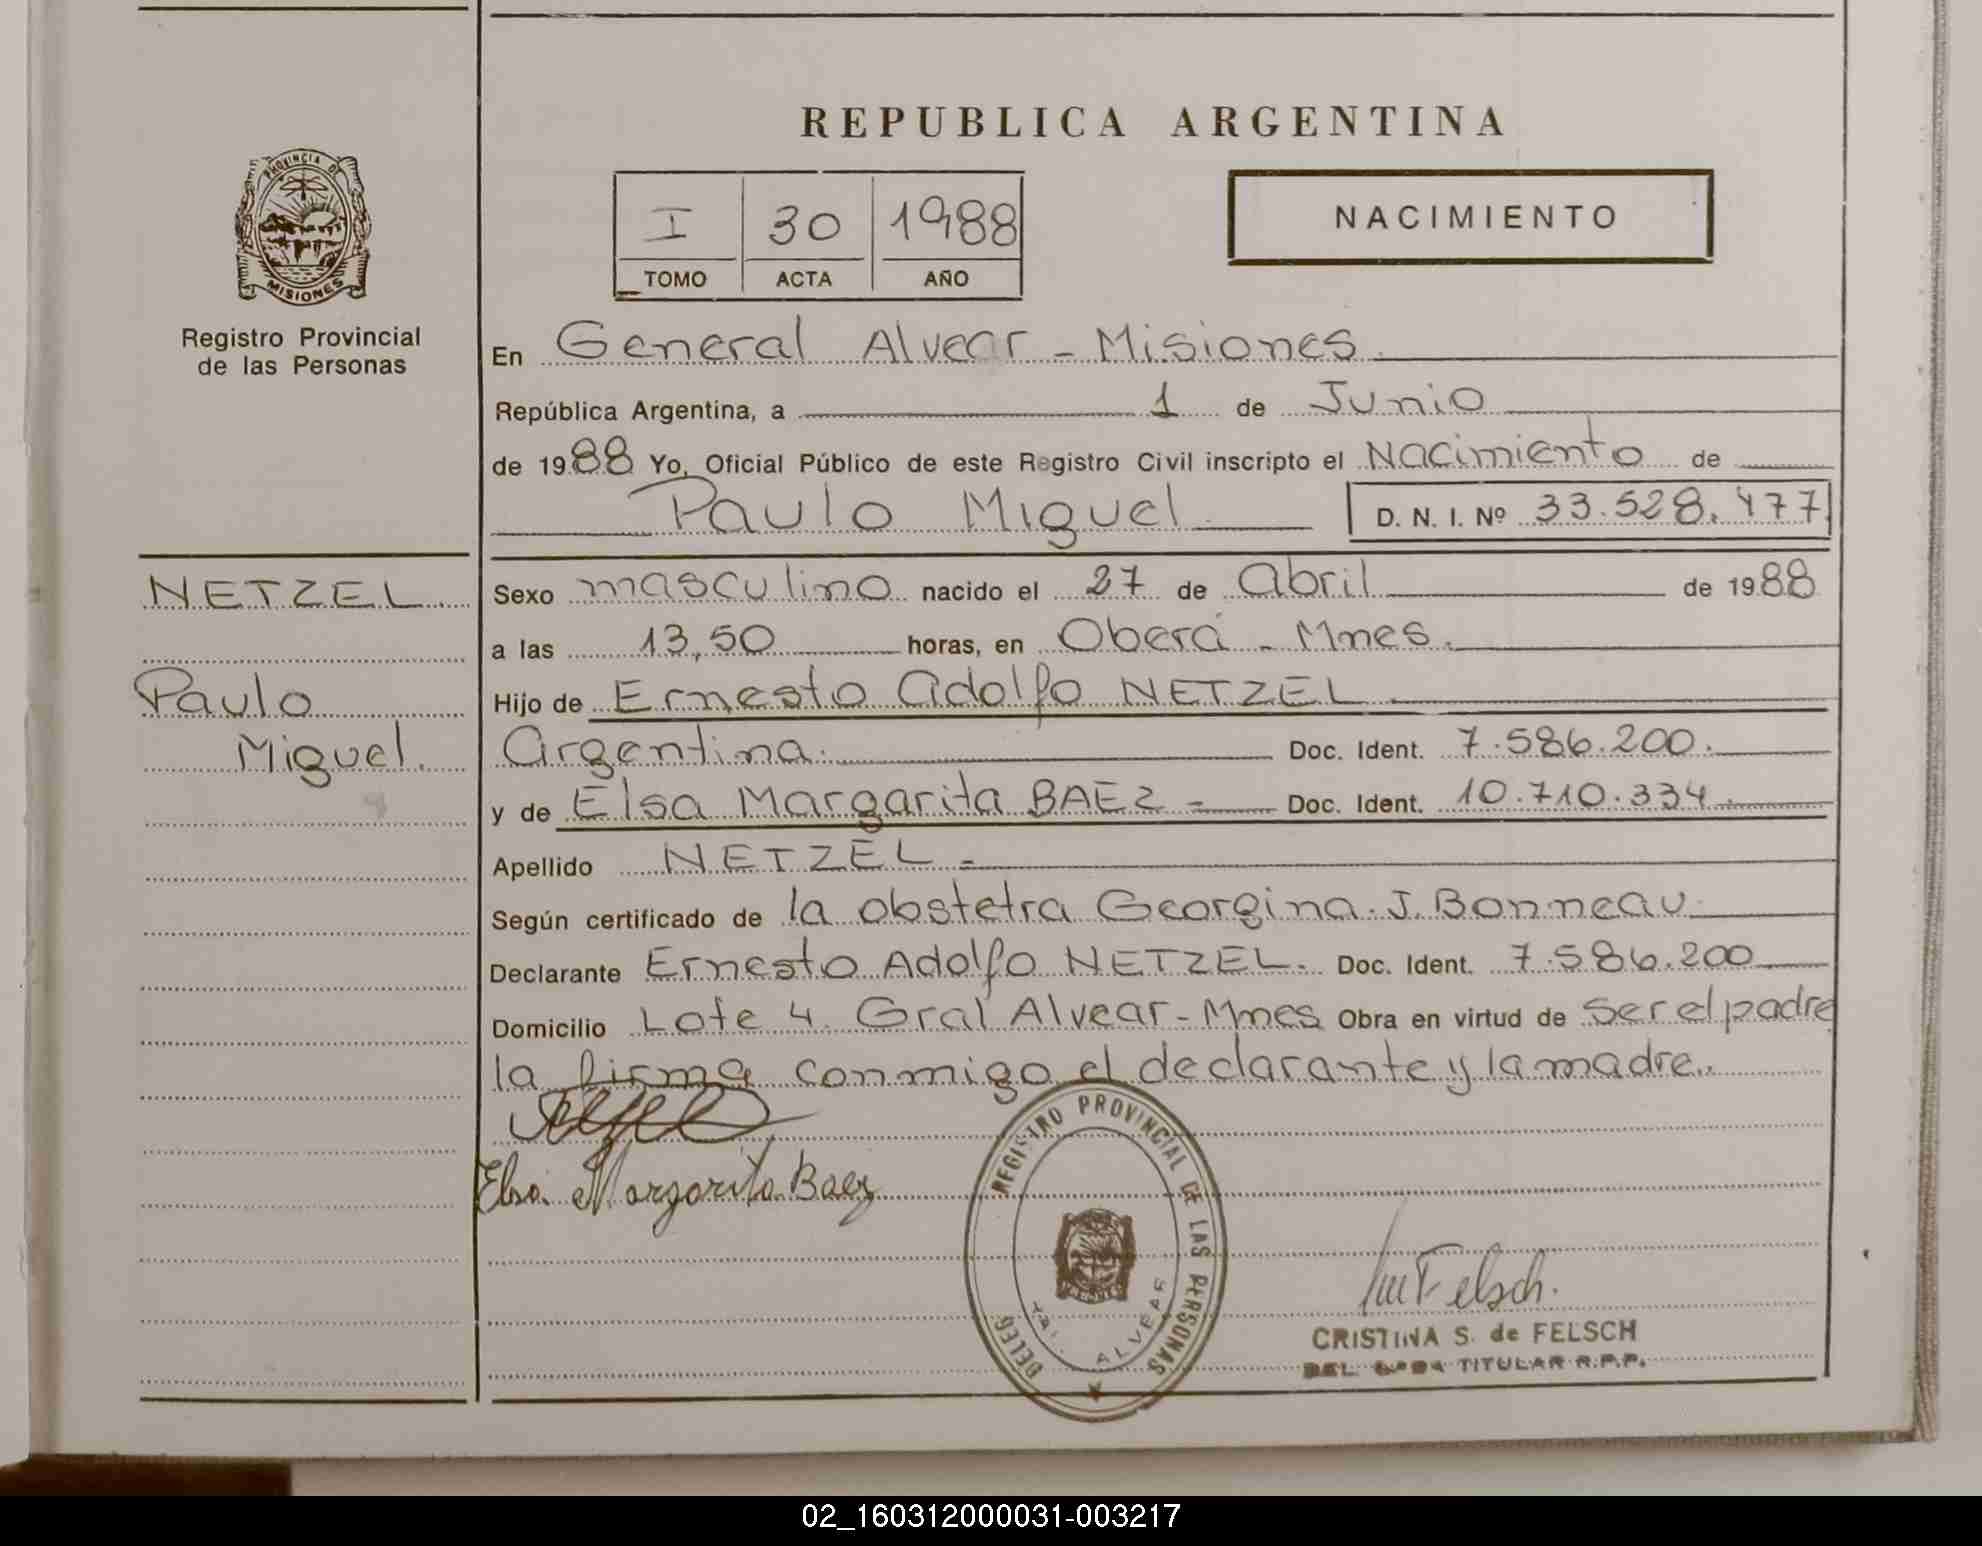 REPUBLICA ARGENTINA
PROVINCIA DE
MISIONES
Registro Provincial
de las Personas
I 30 1988
TOMO ACTA AÑO
NACIMIENTO
En General Alvear - Misiones.
República Argentina, a 1 de Junio
de 1988 Yo, Oficial Público de este Registro Civil inscripto el Nacimiento de
Paulo Miguel D. N. I. Nº 33.528.477
NETZEL.
Paulo
Miguel.
Sexo masculino nacido el 27 de Abril de 1988
a las 13,50 horas, en Oberá - Mnes.
Hijo de Ernesto Adolfo NETZEL
Argentina. Doc. Ident. 7.586.200.
y de Elsa Margarita BAEZ - Doc. Ident. 10.710.334.
Apellido NETZEL -
Según certificado de la obstetra Georgina. J. Bonneau
Declarante Ernesto Adolfo NETZEL. Doc. Ident. 7.586.200
Domicilio Lote 4 Gral Alvear - Mnes Obra en virtud de ser el padre
la firma conmigo el declarante y la madre..
Elsa Margarita Baez
REGISTRO PROVINCIAL DE LAS PERSONAS
DELEG.
ALVEAR
Felsch.
CRISTINA S. de FELSCH
TITULAR R.P.P.
02_160312000031-003217